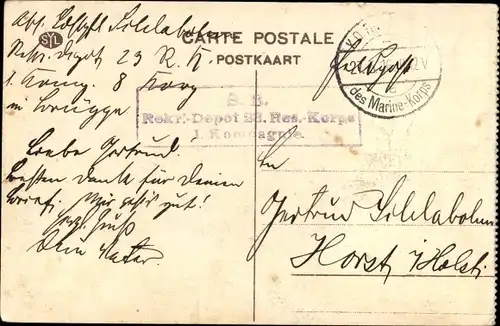 SYL
CARTE POSTALE
POSTKAART
Abs.
Rekr. Depot 23 R. K.
1. Komp.
in Brügge
S. B.
Rekr.-Depot 23. Res.-Korps
1. Kompagnie.
des Marine-Korps
Feldpost
Liebe Gertrud!
Besten Dank für Deinen
Brief. Mir geht's gut!
Herzl. Gruß
Dein Vater.
An
Gertrud
Horst i/Holst.